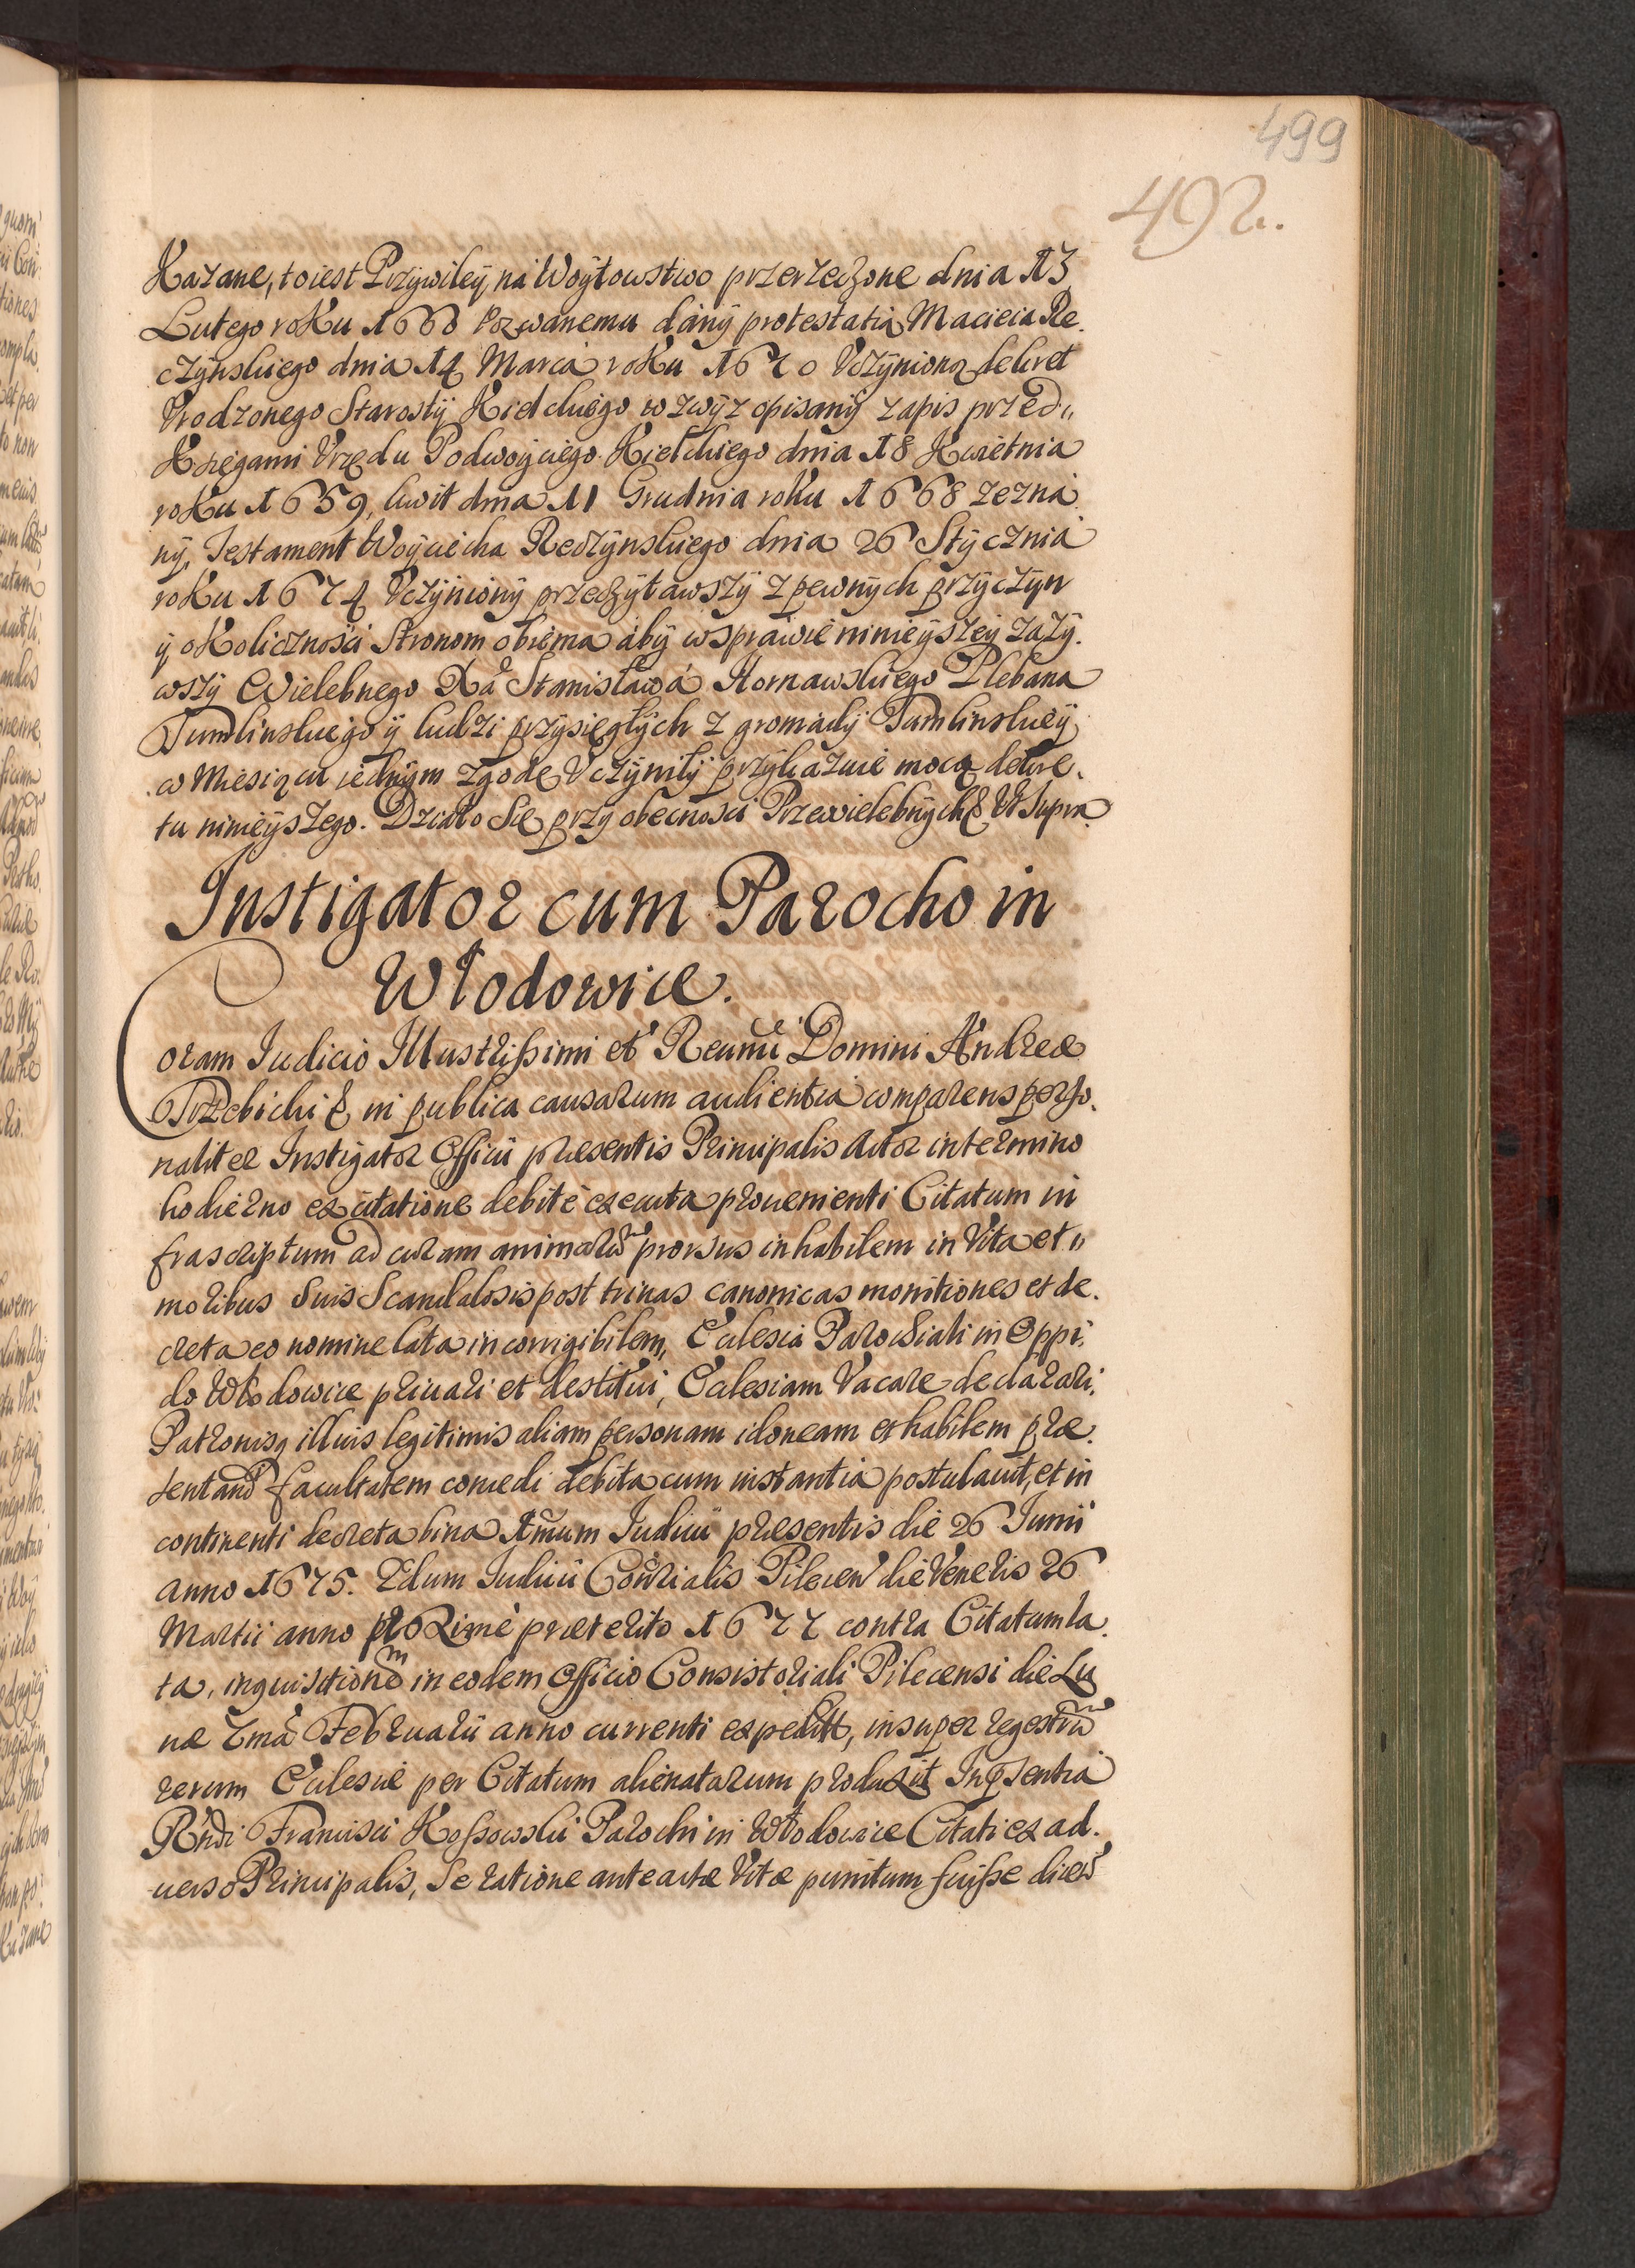 499
492.
Kazane, toiest Przywileÿ na Woÿtowstwo przerzeczone dnia 13
Lutego roKu 1660 Pozwanemu dánÿ protestatią Macieia Re.
czÿnskiego dnia 14 Marca roKu 1670 Vczÿnioną dekret
Vrodzonego Starostÿ Kielckiego wzwÿz opisanÿ zapis przed„
Xsięgami Vrzędu Podwoÿciego Kielckiego dnia 18 Kwietnia
roKu 1659, kwit dnia 11 Grudnia roku 1668 zezná
nÿ, Testament Woÿciecha Reczÿnskiego dnia 26 Stÿcznia
roKu 1674 Vczÿnionÿ przeczÿtawszÿ z pewnÿch przÿczÿn
ÿ oKolicznośći Stronom obiema abÿ wsprawie ninieÿszeÿ zazÿ.
wszÿ Wielebnego Xa Stanisława Hornawskiego Plebana
Tumlinskiego ÿ ludzi przÿsięgłÿch z gromadÿ Tumlinskieÿ
w Miesiącu iednÿm zgodę Vczÿnilÿ przÿkazuie mocą dekre.
tu ninieÿszego. Działo Się przy obecnosci Przewielebnÿch & Vt Supra
Instigator cum Parocho in
Włodowice.
Coram Iudicio Illustrissimi et Reūmi Domini Andreæ
Trzebicki & in publica causarum audientia comparens perso.
naliter Instigator Officii præsentis Principalis Actor in termino
hodierno ex citatione debite executa proueniendi Citatum in
frascriptum ad curam animarū prorsus inhabilem in Vita et „
moribus Suis Scandalosis post trinas canonicas monitiones et de.
creta eo nomine lata incorrigibilem, Ecclesia Parochiali in Oppi.
do Włodowice priuari et destitui, Ecclesiam Vacare declarari,
Patronisq illius legitimis aliam personam idoneam et habilem præ.
sentand facultatem concedi debita cum instantia postulauit, et in
continenti decreta bina 1mum Iudicii præsentis die 26 Iunii
anno 1675. 2dum Iudicii Cōnsrialis Pilecen die Veneris 26
Martii anno proxime præterito 1677 contra Citatum la.
ta, inquisitionem in eodem Officio Consistoriali Pilecensi die Lu
næ 7ma Februarii anno currenti expedit, insuper regestrū
rerum Ecclesiæ per Citatum alienatarum produxit In psentia
Rndi Francisci Kossowski Parochi in Włodowice Citati ex ad.
uerso Principalis, Se ratione anteactæ Vitæ punitum fuisse dicen